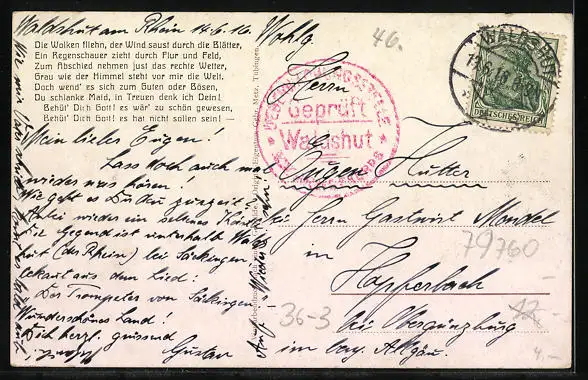 Waldshut am Rhein 14.6.16.
Die Wolken fliehn, der Wind saust durch die Blätter,
Ein Regenschauer zieht durch Flur und Feld,
Zum Abschied nehmen just das rechte Wetter,
Grau wie der Himmel steht vor mir die Welt.
Doch wend' es sich zum Guten oder Bösen,
Du schlanke Maid, in Treuen denk ich Dein!
Behüt' Dich Gott! es wär' zu schön gewesen,
Behüt' Dich Gott! es hat nicht sollen sein! —
Mein lieber Eugen!
Lass doch auch mal
wieder was hören!
Wie geht es Dir zurzeit?
Anbei wieder ein schönes
Die Gegend ist unterhalb Walds
hut (des Rhein) bei Säckingen,
bekannt aus dem Lied:
Der Trompeter von Säckingen.
Wunderschönes Land!
Dich herzl. grüssend
Gustav
Auf Wiedersehn
Gebr. Metz, Tübingen.
Wohlg
46.
Herrn
Eugen Hutter
bei Herrn Gastwirt Mondel
in
Hopferbach
bei Obergünzburg
im bay. Allgäu.
ÜBERWACHUNGSSTELLE
Geprüft
Waldshut
WALDSHUT
DEUTSCHES REICH
79760
36-3
12.-
4,-